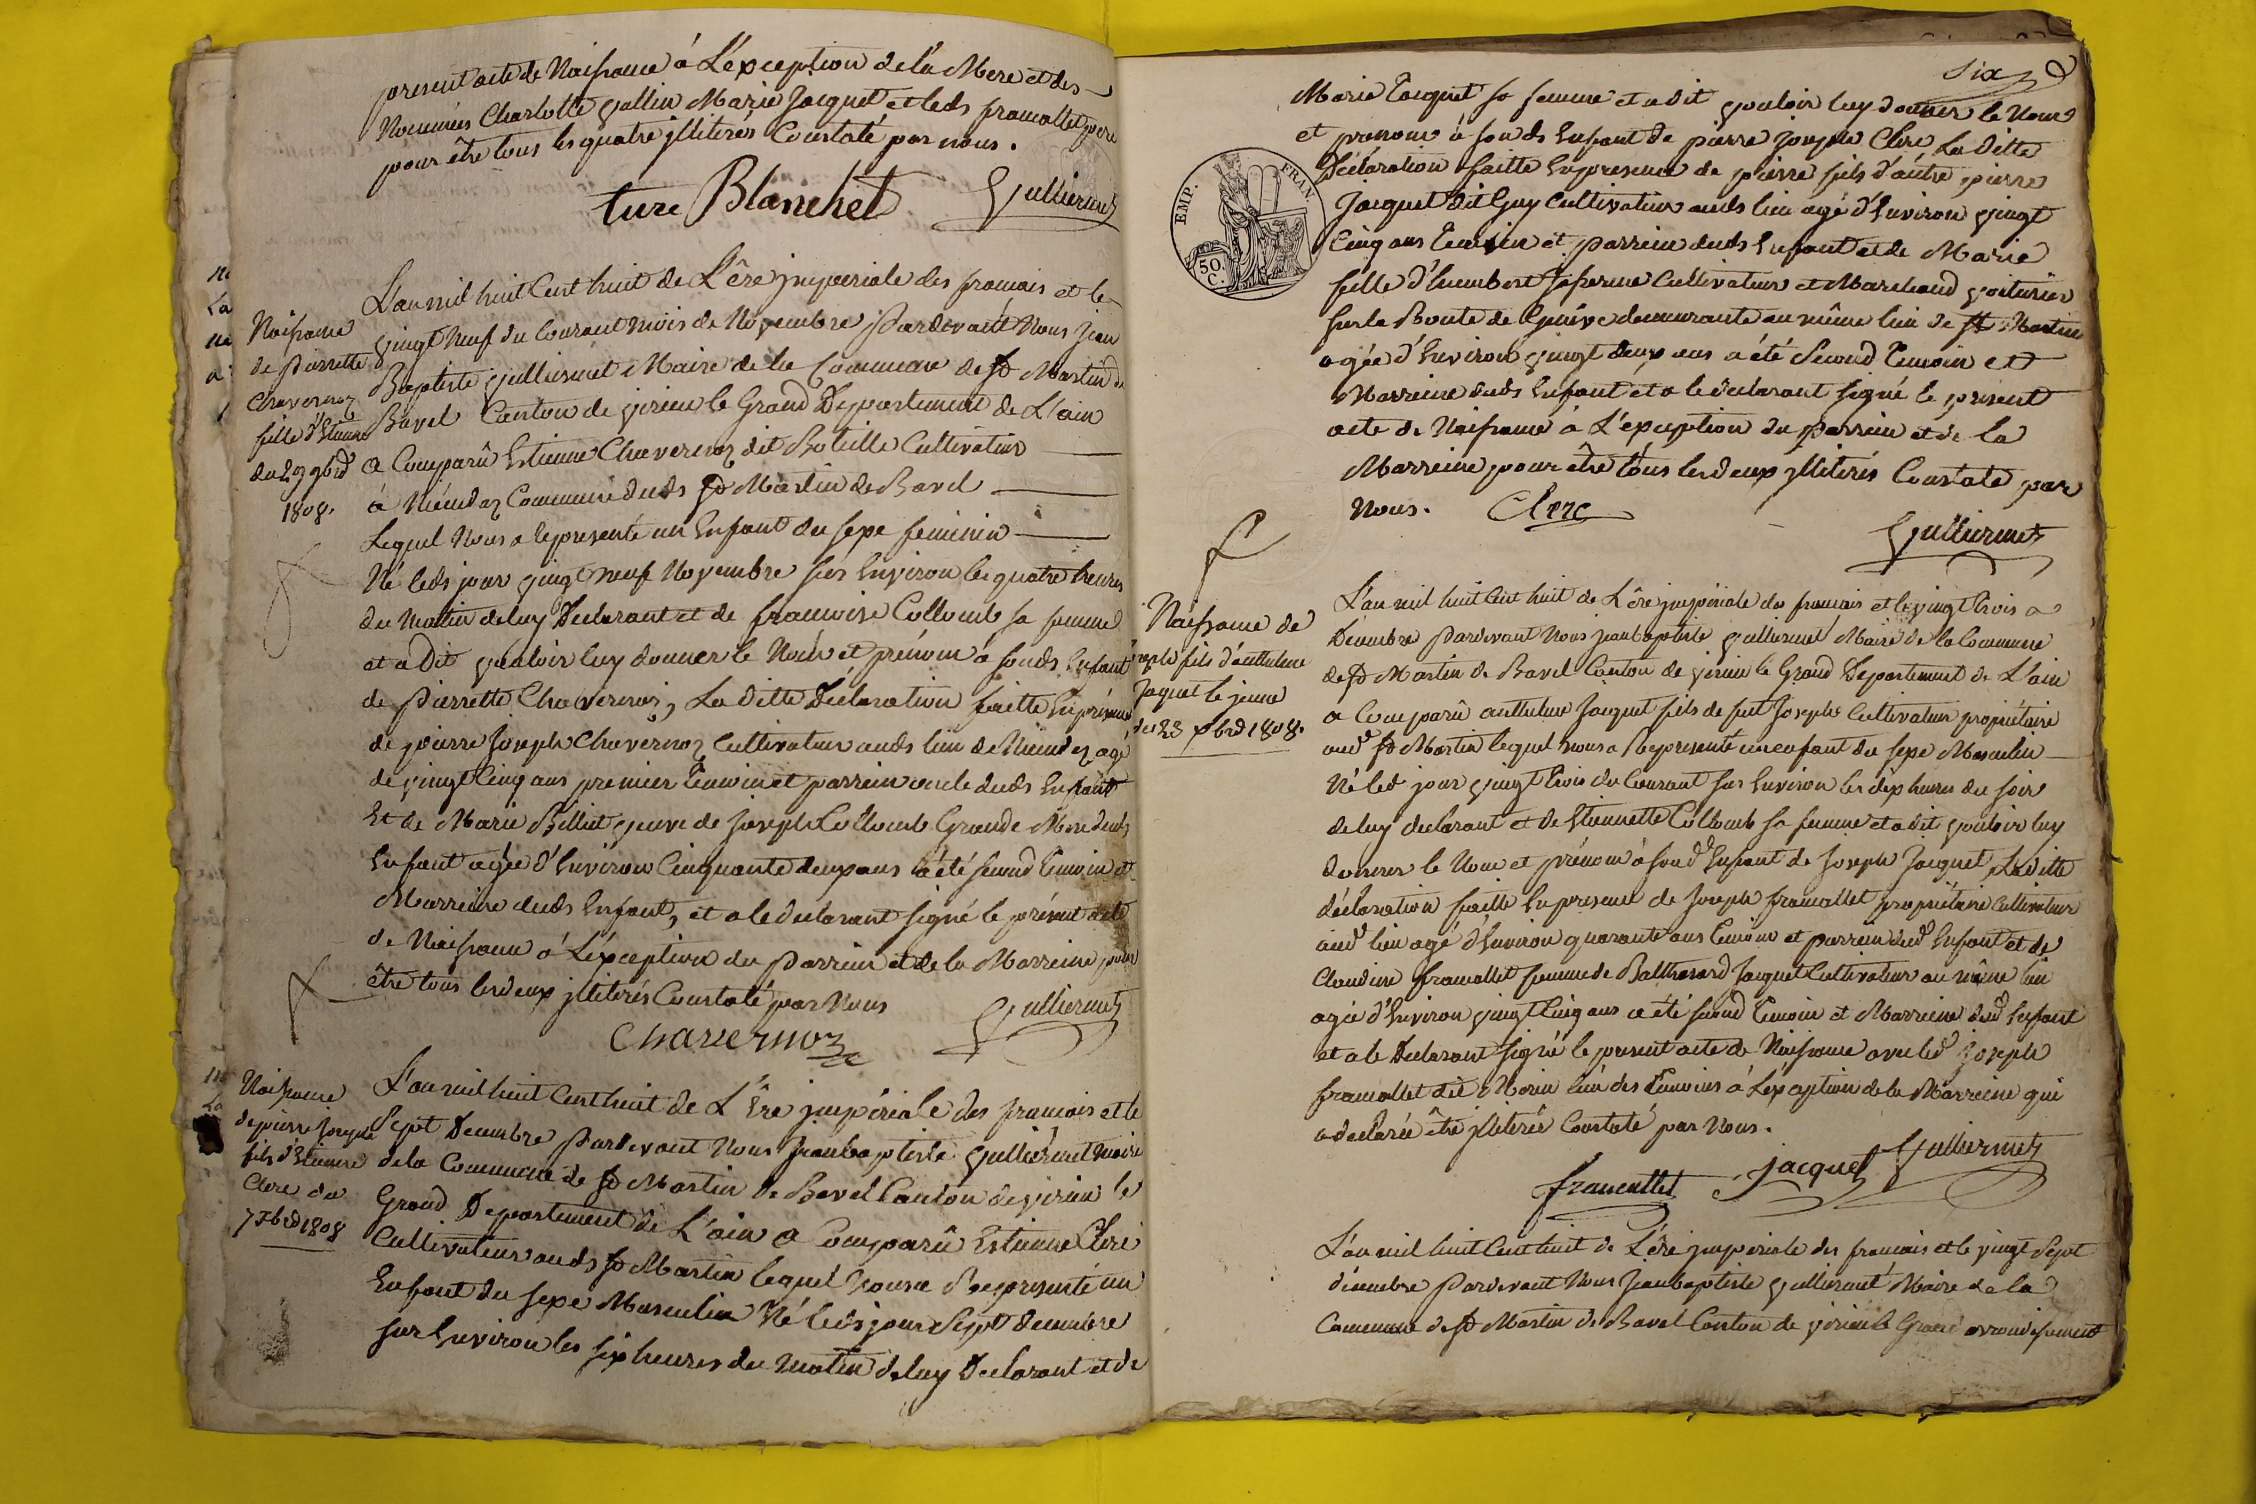 present acte de Naissance á L'éxception de la Mere et des
Nommées Charlotte Gullin Marie Jacquet et leds framollet pere
pour être tous les quatre jlliterés Constaté par nous.
ture Blanchet Gulliermet
L'an mil huit Cent huit de L'êre jmperiale des francais et le
vingt Neuf du Courant mois de Novembre Pardevant Nous Jean
Baptiste Gulliermet Maire de la Commune de St Martin de
Bavel Canton de virieu le Grand Departement de L'ain
a Comparû Estienne Chavernoz dit Boteille Cultivateur
á Niéudaz Commune duds St Martin de Bavel
Lequel Nous a représenté un Enfant du sexe feminin
Né leds jour vingt neuf Novembre sur Environ les quatre heures
du Matin de luy Declarant et de francoise Collomb sa femme
et a Dit vouloir luy donner le Nom et prénom a sonds Enfant
de Pierrette Chavernoz, La ditte Déclaration faitte En présence
de pierre Joseph Chavernoz Cultivateur auds lieu de agé
de vingt Cinq ans premier Temoin et parrain oncle duds Enfant
Et de Marie Billiet veuve de Joseph Collomb Grande Mere duds
Enfant agée d'Environ Cinquante deux ans a été second Temoin et
Marreine duds Enfant, et a le declarant signé le présent acte
de Naissance á L'éxception du Parrein et de la Marreine pour
être tous les deux jlliterés Constaté par Nous
Chavernoz Gulliermet
L'an mil huit Cent huit de L'Ere jmpériale des francais et le
Sept Decembre Pardevant Nous Jean baptiste Gulliermet Maire
de la Commune de St Martin de Bavel Canton de virieu le
Grand Departement de L'ain a Comparû Estienne Clerc
Cultivateur auds St Martin lequel Nous a Representé un
Enfant du sexe Masculin Né leds jour Sept decembre
sur Environ les six heures du Matin de luy Declarant et de
Naissance
de Pierrette
Chavernoz
fille d'Etienne
du 29 9bre
1808.
Naissance
de pierre Joseph
fils d'Etienne
Clerc du
7 Xbre 1808
Six
Marie Jacquet sa femme et a dit vouloir luy donner le Nom
et prenom à sonds Enfant de pierre Joseph Clerc La ditte
Déclaration faitte En presence de pierre fils d'autre pierre
Jacquet dit Guy Cultivateur auds lieu agé d'Environ vingt
Cinq ans Temoin et parrein duds Enfant et de Marie
fille d'humbert Cultivateur et Marchand voiturier
sur la Route de Genéve demeurante au même lieu de St Martin
agée d'Environ vingt deux ans a été Second Temoin et
Marreine duds Enfant et a le declarant signé le present
acte de Naissance á L'éxception du parrein et de la
Marreine pour être tous les deux jlliterés Constaté par
Nous. Clerc
Gulliermet
EMP. FRAN.
50. C.
L'an mil huit Cent huit de L'êre jmpériale des francais et le vingt trois
Décembre Pardevant Nous Jean baptiste Gulliermet Maire de la Commune
de St Martin de Bavel Canton de virieu le Grand Departement de L'ain
a Comparû anthelme Jacquet fils de feu Joseph Cultivateur propriétaire
aud St Martin lequel nous a Représenté un enfant du sexe Masculin
Né led jour vingt trois du Courant sur Environ les dix heures du soir
de luy declarant et de Etiennette Collomb sa femme et a dit vouloir luy
donner le Nom et prénom à sond Enfant de Joseph Jacquet, La ditte
déclaration faitte En presence de Joseph framollet propriétaire Cultivateur
aud lieu agé d'Environ quarante ans Temoin et parrein dud Enfant et de
Claudine framollet femme de Balthasard Jacquet Cultivateur au même lieu
agée d'Environ vingt Cinq ans a été second Temoin et Marreine dud Enfant
et a le Declarant signé le present acte de Naissance avec led Joseph
framollet dit Morin l'un des Temoins à L'exception de la Marreine qui
a declarée être jlliterée Constaté par Nous.
jacquet Gulliermet
L'an mil huit Cent huit de L'êre jmperiale des francais et le vingt Sept
décembre Pardevant Nous Jean baptiste Gulliermet Maire de la
Commune de St Martin de Bavel Canton de virieu le Grand arrondissement
Naissance de
Joseph fils d'anthelme
Jaquet le jeune
du 23 Xbre 1808.